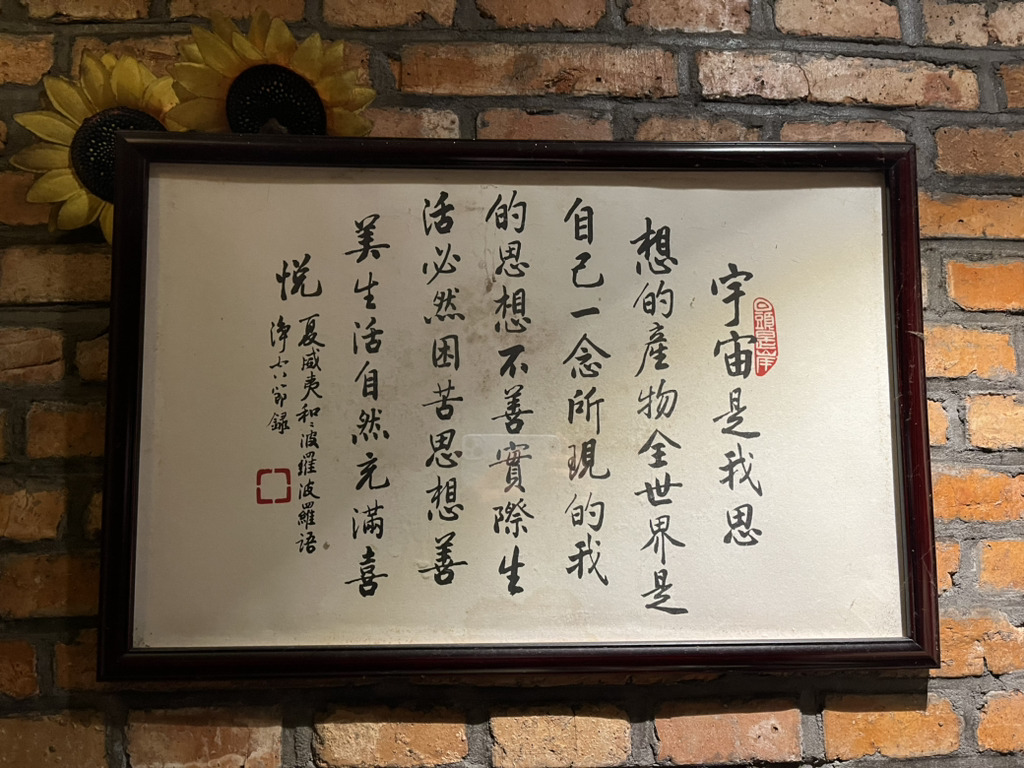 回頭是岸
宇宙是我思
想的產物全世界是
自己一念所現的我
的思想不善實際生
活必然困苦思想善
美生活自然充滿喜
悅
夏威夷和〻波羅波羅語
淨七節録